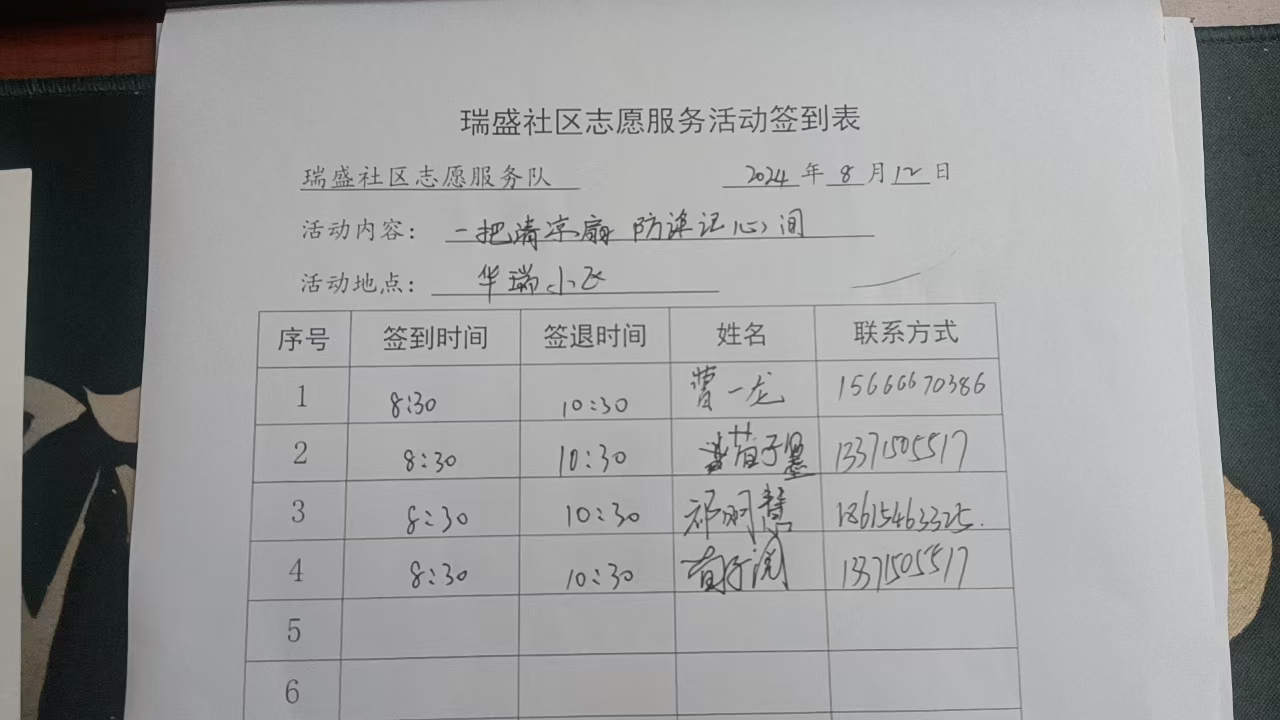 瑞盛社区志愿服务活动签到表
瑞盛社区志愿服务队 2024 年 8 月 12 日
活动内容: 一把清凉扇 防诈记心间
活动地点: 华瑞小区
序号 签到时间 签退时间 姓名 联系方式
1 8:30 10:30 曹一龙 15666670386
2 8:30 10:30 苗子墨 13371505517
3 8:30 10:30 祁明慧 18615463325.
4 8:30 10:30 13371505517
5
6